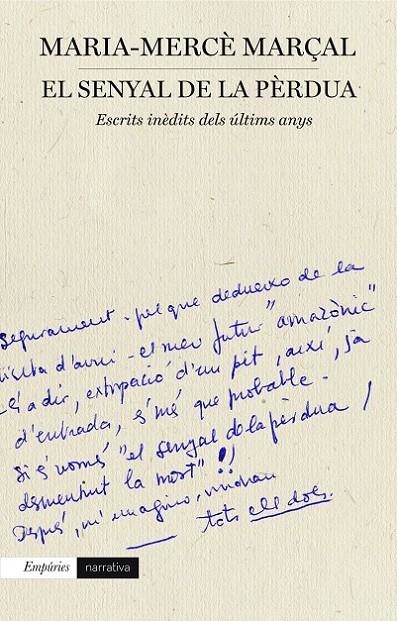 MARIA-MERCÈ MARÇAL
EL SENYAL DE LA PÈRDUA
Escrits inèdits dels últims anys
Segurament - pel que dedueixo de la
visita d'avui - el meu futur "amazònic"
- és a dir, extirpació d'un pit, així, ja
d'entrada, és més que probable.
Si és només "el senyal de la pèrdua /
desmentint la mort" !!
Després, m'imagino, vindran
tots ells dos.
Empúries narrativa